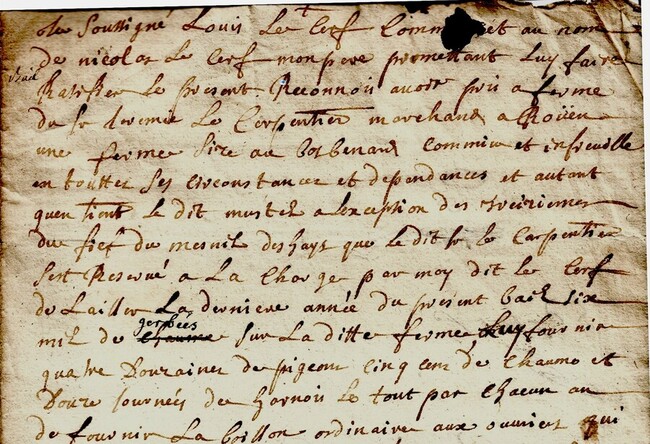 Je Soussigné Louis Le Cerf Comme et au nom
de nicolas Le Cerf mon pere promettant Luy faire
bail
Ratifier Le present Reconnois avoir pris a ferme
du sr Le Carpentier marchand a Roüen
une ferme size au bosbenard Commin et infreville
en touttes ses circonstances et dependances et autant
quen tient Le dit a lexception des treiziemes
du fief du mesnil deshays que Le dit sr Le Carpentier
sest Reservé a La Charge par moy dit Le Cerf
de Laisser La derniere année du present bail six
mil de gerbées Chaume sur La ditte ferme Luy fournir
quatre Douzaines de pigeons Cinq cens de Chaume et
Douze journées de harnois Le tout par Chacun an
de fournir La boisson ordinaire aux ouvriers qui